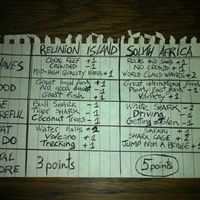 REUNION ISLAND SOUTH AFRICA
WAVES
CORAL REEF -1
CROWDED -1
MID-HIGH QUALITY WAVES +1
ROCKS AND SAND +1
NO CROWD +1
WORLD CLASS WAVES +2
OOD
Great local food +1
No good
Goat fish
Great
Fast food
Variety +1
BE
REFUL
Bull SHARK -1
Tiger SHARK -1
Coconut trees -1
White SHARK -1
Driving -1
Getting -1
AT
DO
Water falls +1
Volcano +1
Trecking +1
SAFARI
SHARK CAGE +1
JUMP FROM A BRIDGE +1
AL
ORE
3 points
5 points